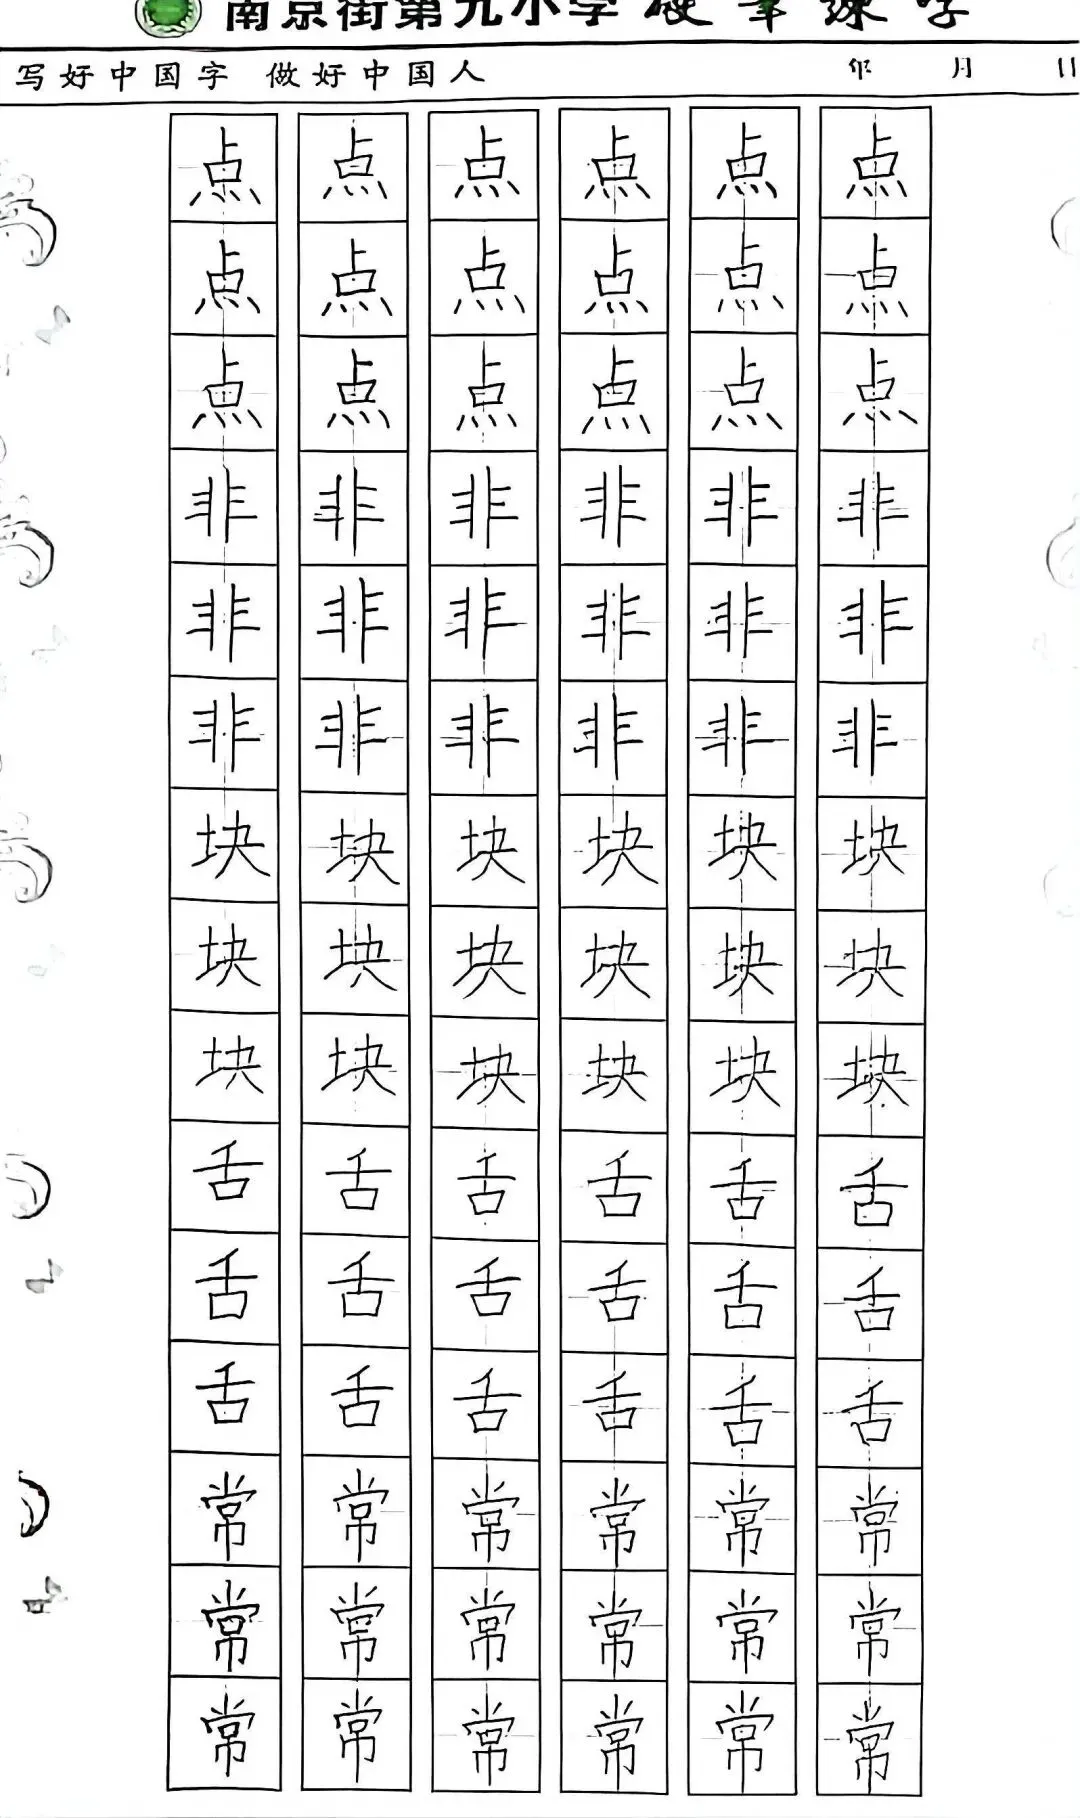 南京街第九小学 硬笔练字
写好中国字 做好中国人 年 月 日
点 点 点 点 点 点
点 点 点 点 点 点
点 点 点 点 点 点
非 非 非 非 非 非
非 非 非 非 非 非
非 非 非 非 非 非
块 块 块 块 块 块
块 块 块 块 块 块
块 块 块 块 块 块
舌 舌 舌 舌 舌 舌
舌 舌 舌 舌 舌 舌
舌 舌 舌 舌 舌 舌
常 常 常 常 常 常
常 常 常 常 常 常
常 常 常 常 常 常